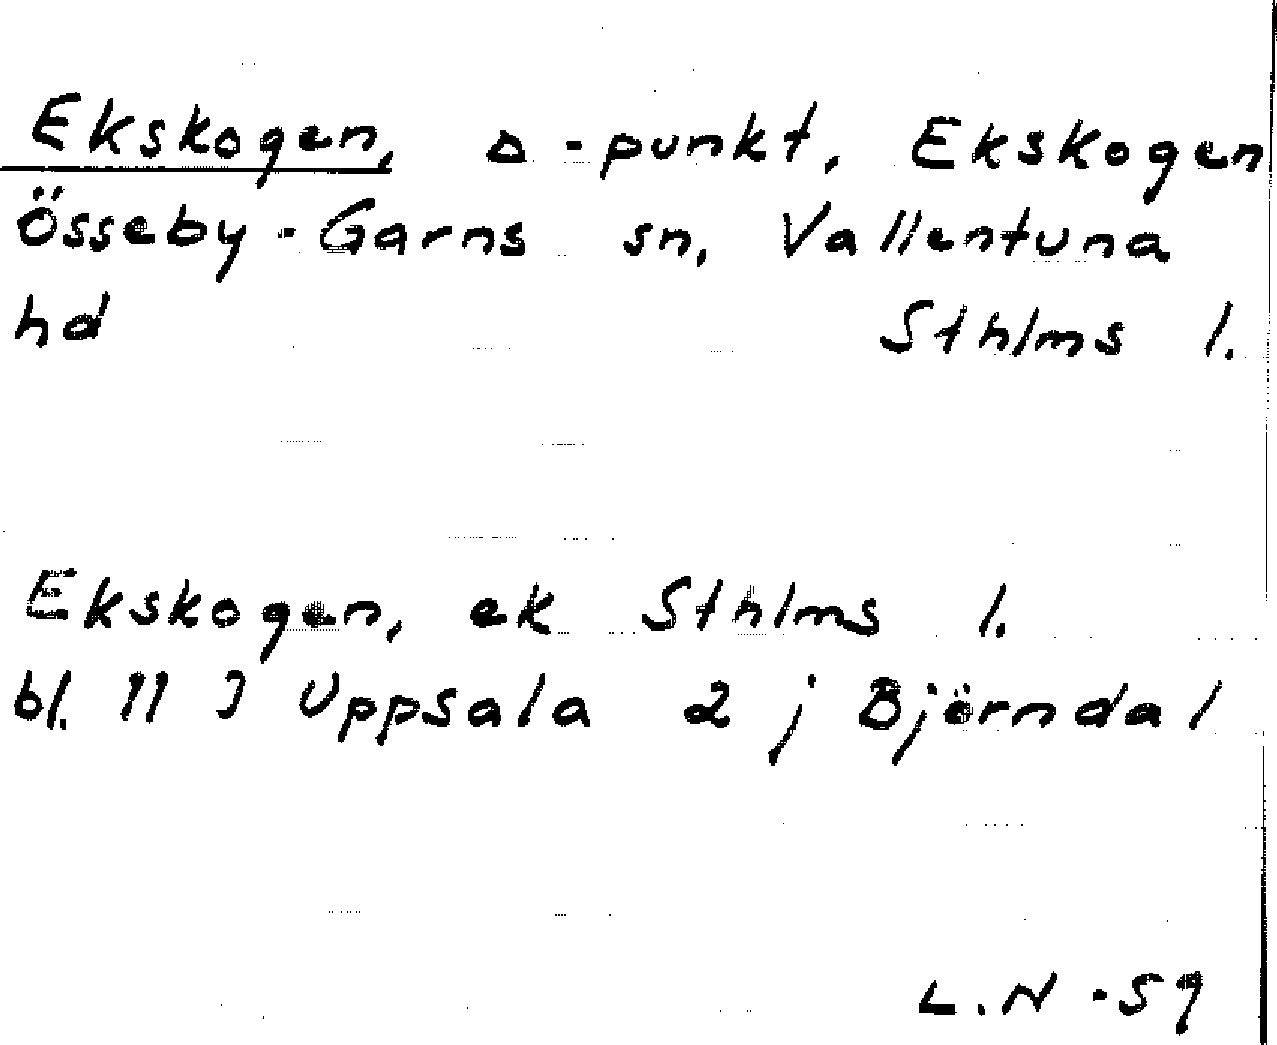 Ekskogen, △-punkt, Ekskogen
Össeby-Garns sn, Vallentuna
hd Sthlms l.
Ekskogen, ek Sthlms l.
bl. 11 J Uppsala 2 j Björndal
L.N -59